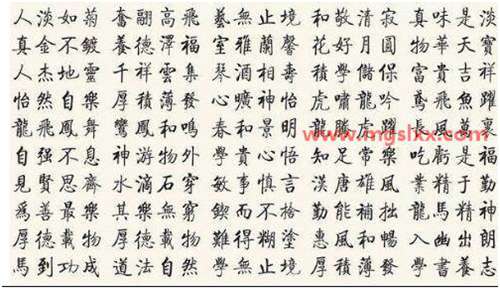 人淡如菊 奮翮高飛 藝無止境 和敬清寂 真味是淡
真金不鍍 養德澤福 室雅蘭馨 花好月圓 物華天寶
人杰地靈 千祥雲集 琴酒相壽 積學儲 富貴吉
怡然自樂 厚積薄發 心曠神怡 虎嘯龍吟 鳶飛魚躍
龍飛鳳舞 鸞鳳和鳴 春和景明 龍虎躍 長風萬裏
www.mgslxx.com
自强不息 神游物外 學貴心悟 知足常樂 吃虧是福
見賢思齊 水滴石穿 敏事慎言 漢唐雄風 業精于勤
爲善最樂 其樂無窮 鍥而不捨 勤能補拙 龍馬精神
厚德載物 厚德載物 難得糊塗 惠風和暢 入幽出朗
馬到功成 道法自然 學無止境 厚積薄發 學書養志